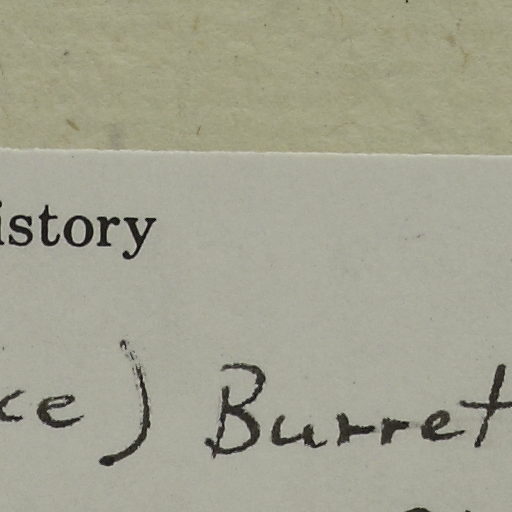 istory
ce) Burret